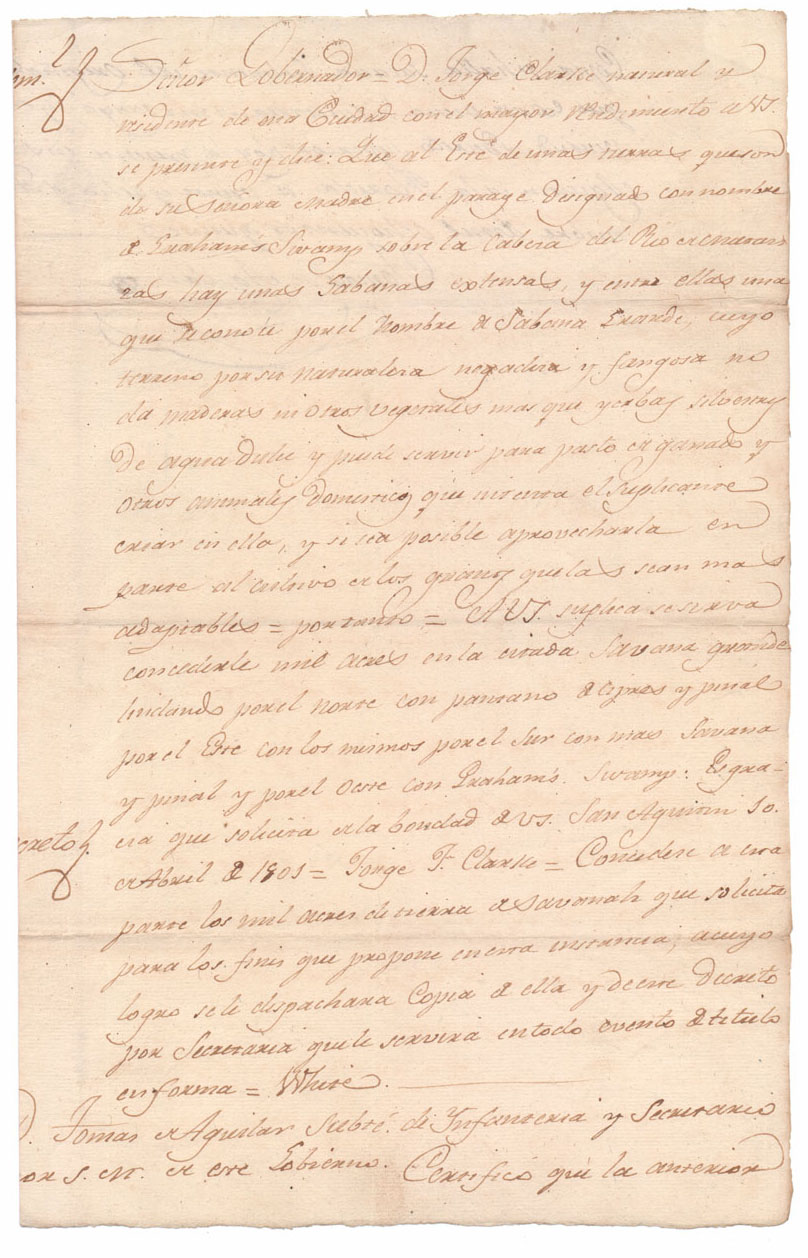 Señor Gobernador = Dn. Jorge Clarke natural y
residente de esta Ciudad con el mayor rendimento a VS.
se presente y dice: Que al Este de unas tierras que son
de su señora Madre en el parage designado con nombre
de Graham's Swamp sobre la Cabeza del Rio de matan
zas, hay unas Sabanas extensas, y entre ellas una
que se conoce por el nombre de Sabana Grande, cuyo
terreno por su naturaleza negadiza y fangosa no
da maderas ni otros vegetales mas que yerbas silvestres
De agua Dulce y puede servir para pasto de ganado y
otros animales Domesticos que intenta el suplicante
criar en ella, y si sea posible aprovecharla en
parte al cultivo de los granos que la sean mas
adaptables = por tanto = A VS. suplica se sirva
concederle mil acres en la citada Savana grande
lindando por el norte con pantano de cipres y pinal
por el Este con los mismos por el Sur con mas Savana
y pinal y por el Oeste con Graham's Swamp: Es gra-
cia que solicita de la bondad de VS. San Agustin 10.
de Abril de 1801 = Jorge J. F. Clarke = Concedese a esta
creto
parte los mil acres de tierra de Savanah que solicita
para los fines que propone en esta instancia; a cuyo
logro se le despachara Copia de ella y de este Decreto
por Secretaria que le servira en todo evento de titulo
en forma = White.
Tomas de Aguilar Subte. de Infanteria y Secretario
por S. M. de este Gobierno. Certifico que la anterior